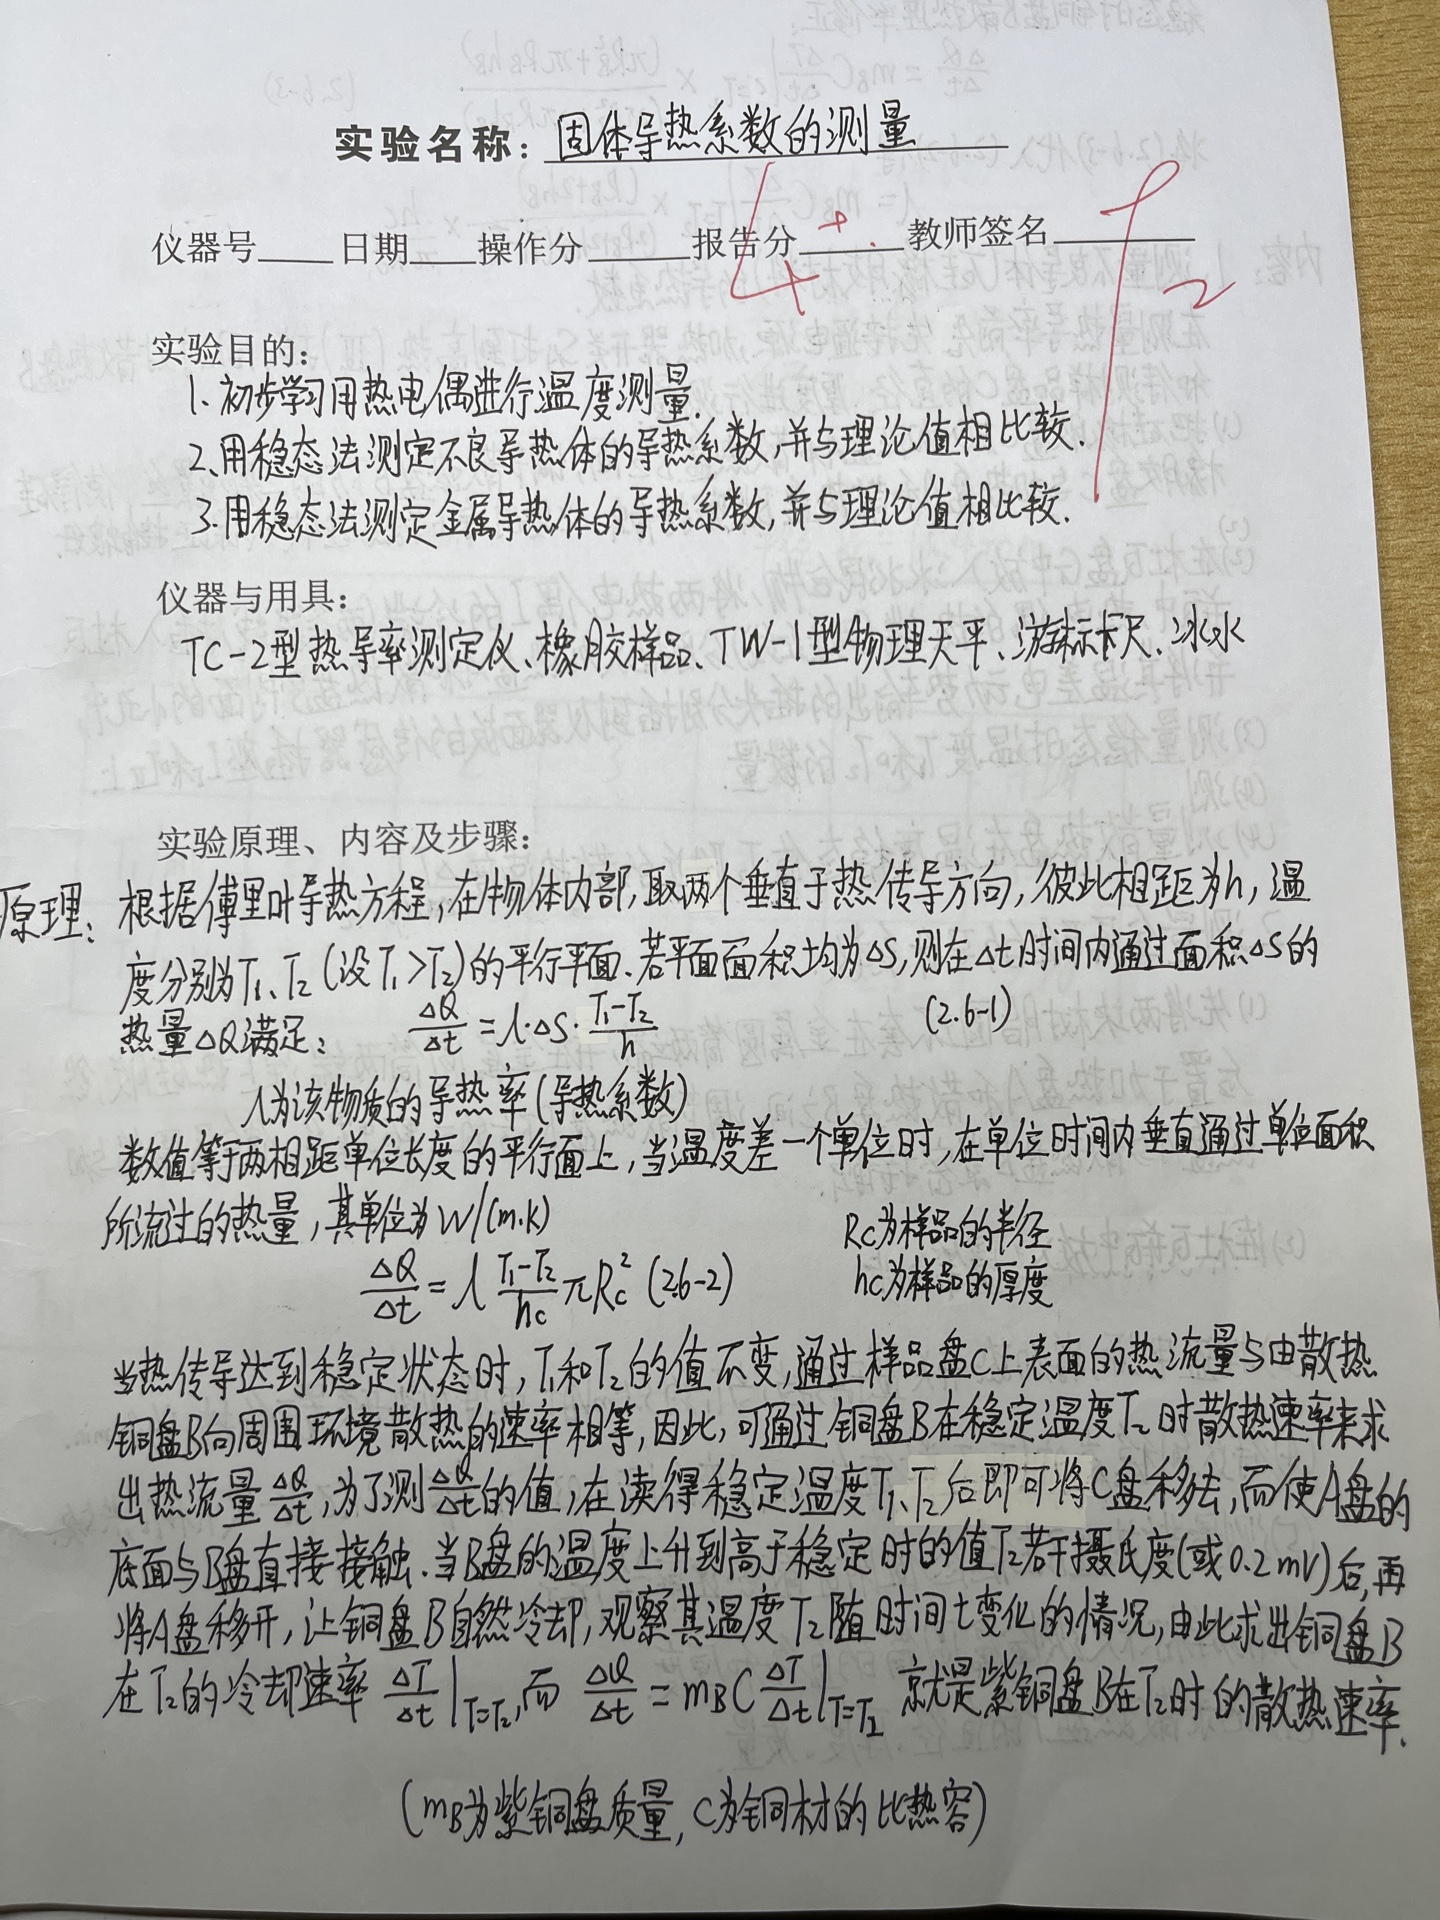 实验名称：固体导热系数的测量
仪器号____日期____操作分____报告分 4+ 教师签名____
实验目的：
1、初步学习用热电偶进行温度测量.
2、用稳态法测定不良导热体的导热系数,并与理论值相比较.
3、用稳态法测定金属导热体的导热系数,并与理论值相比较.
仪器与用具：
TC-2型热导率测定仪、橡胶样品、TW-1型物理天平、游标卡尺、冰水
实验原理、内容及步骤：
原理：根据傅里叶导热方程,在物体内部,取两个垂直于热传导方向,彼此相距为h,温
度分别为T₁、T₂(设T₁>T₂)的平行平面.若平面面积均为ΔS,则在Δt时间内通过面积ΔS的
热量ΔQ满足： ΔQ/Δt=λ·ΔS·(T₁-T₂)/h (2.6-1)
λ为该物质的导热率(导热系数)
数值等于两相距单位长度的平行面上,当温度差一个单位时,在单位时间内垂直通过单位面积
所流过的热量,其单位为W/(m.K)
Rc为样品的半径
ΔQ/Δt=λ (T₁-T₂)/hc πRc² (2.6-2)
hc为样品的厚度
当热传导达到稳定状态时,T₁和T₂的值不变,通过样品盘C上表面的热流量与由散热
铜盘B向周围环境散热的速率相等,因此,可通过铜盘B在稳定温度T₂时散热速率来求
出热流量ΔQ/Δt,为了测ΔQ/Δt的值,在读得稳定温度T₁、T₂后即可将C盘移去,而使A盘的
底面与B盘直接接触.当B盘的温度上升到高于稳定时的值T₂若干摄氏度(或0.2mV)后,再
将A盘移开,让铜盘B自然冷却,观察其温度T₂随时间t变化的情况,由此求出铜盘B
在T₂的冷却速率 ΔT/Δt|T=T₂,而 ΔQ/Δt=mBC ΔT/Δt|T=T₂ 就是紫铜盘B在T₂时的散热速率.
(mB为紫铜盘质量,C为铜材的比热容)